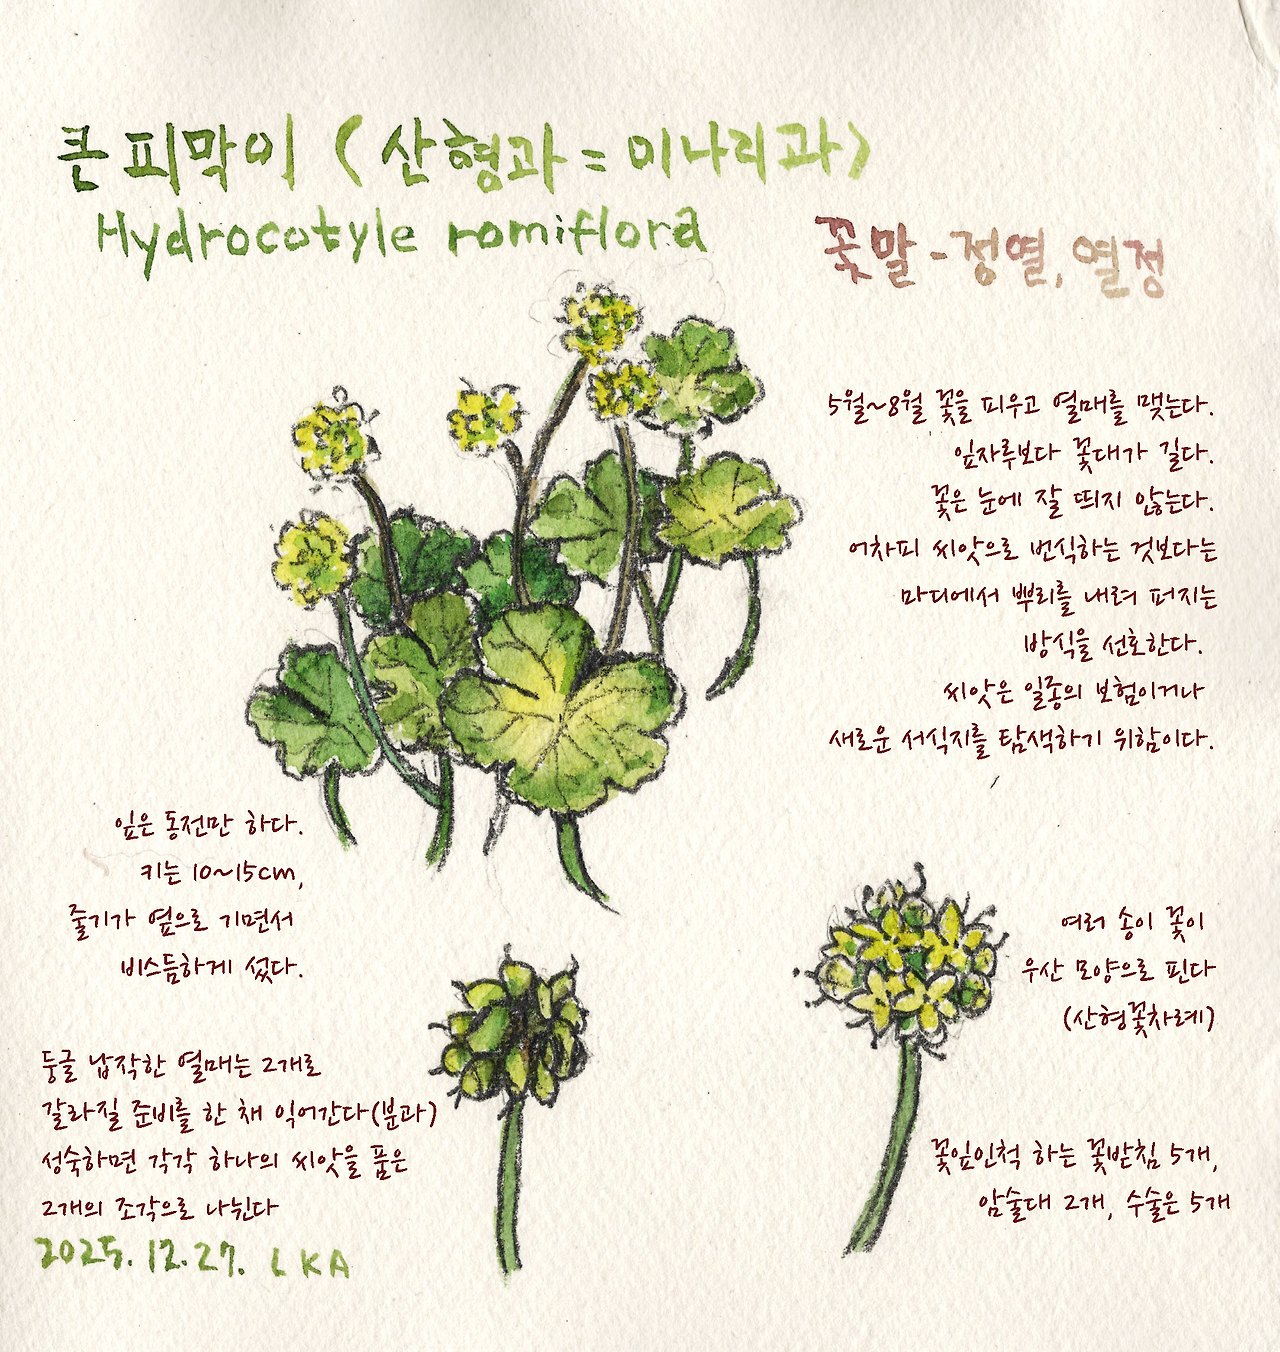 큰피막이 (산형과=미나리과)
Hydrocotyle romiflora
꽃말-정열, 열정
5월~8월 꽃을 피우고 열매를 맺는다.
잎자루보다 꽃대가 길다.
꽃은 눈에 잘 띄지 않는다.
어차피 씨앗으로 번식하는 것보다는
마디에서 뿌리를 내려 퍼지는
방식을 선호한다.
씨앗은 일종의 보험이거나
새로운 서식지를 탐색하기 위함이다.
잎은 동전만 하다.
키는 10~15cm,
줄기가 옆으로 기면서
비스듬하게 섰다.
여러 송이 꽃이
우산 모양으로 핀다
(산형꽃차례)
둥글 납작한 열매는 2개로
갈라질 준비를 한 채 익어간다(분과)
성숙하면 각각 하나의 씨앗을 품은
2개의 조각으로 나뉜다
꽃잎인척 하는 꽃받침 5개,
암술대 2개, 수술은 5개
2025.12.27. LKA